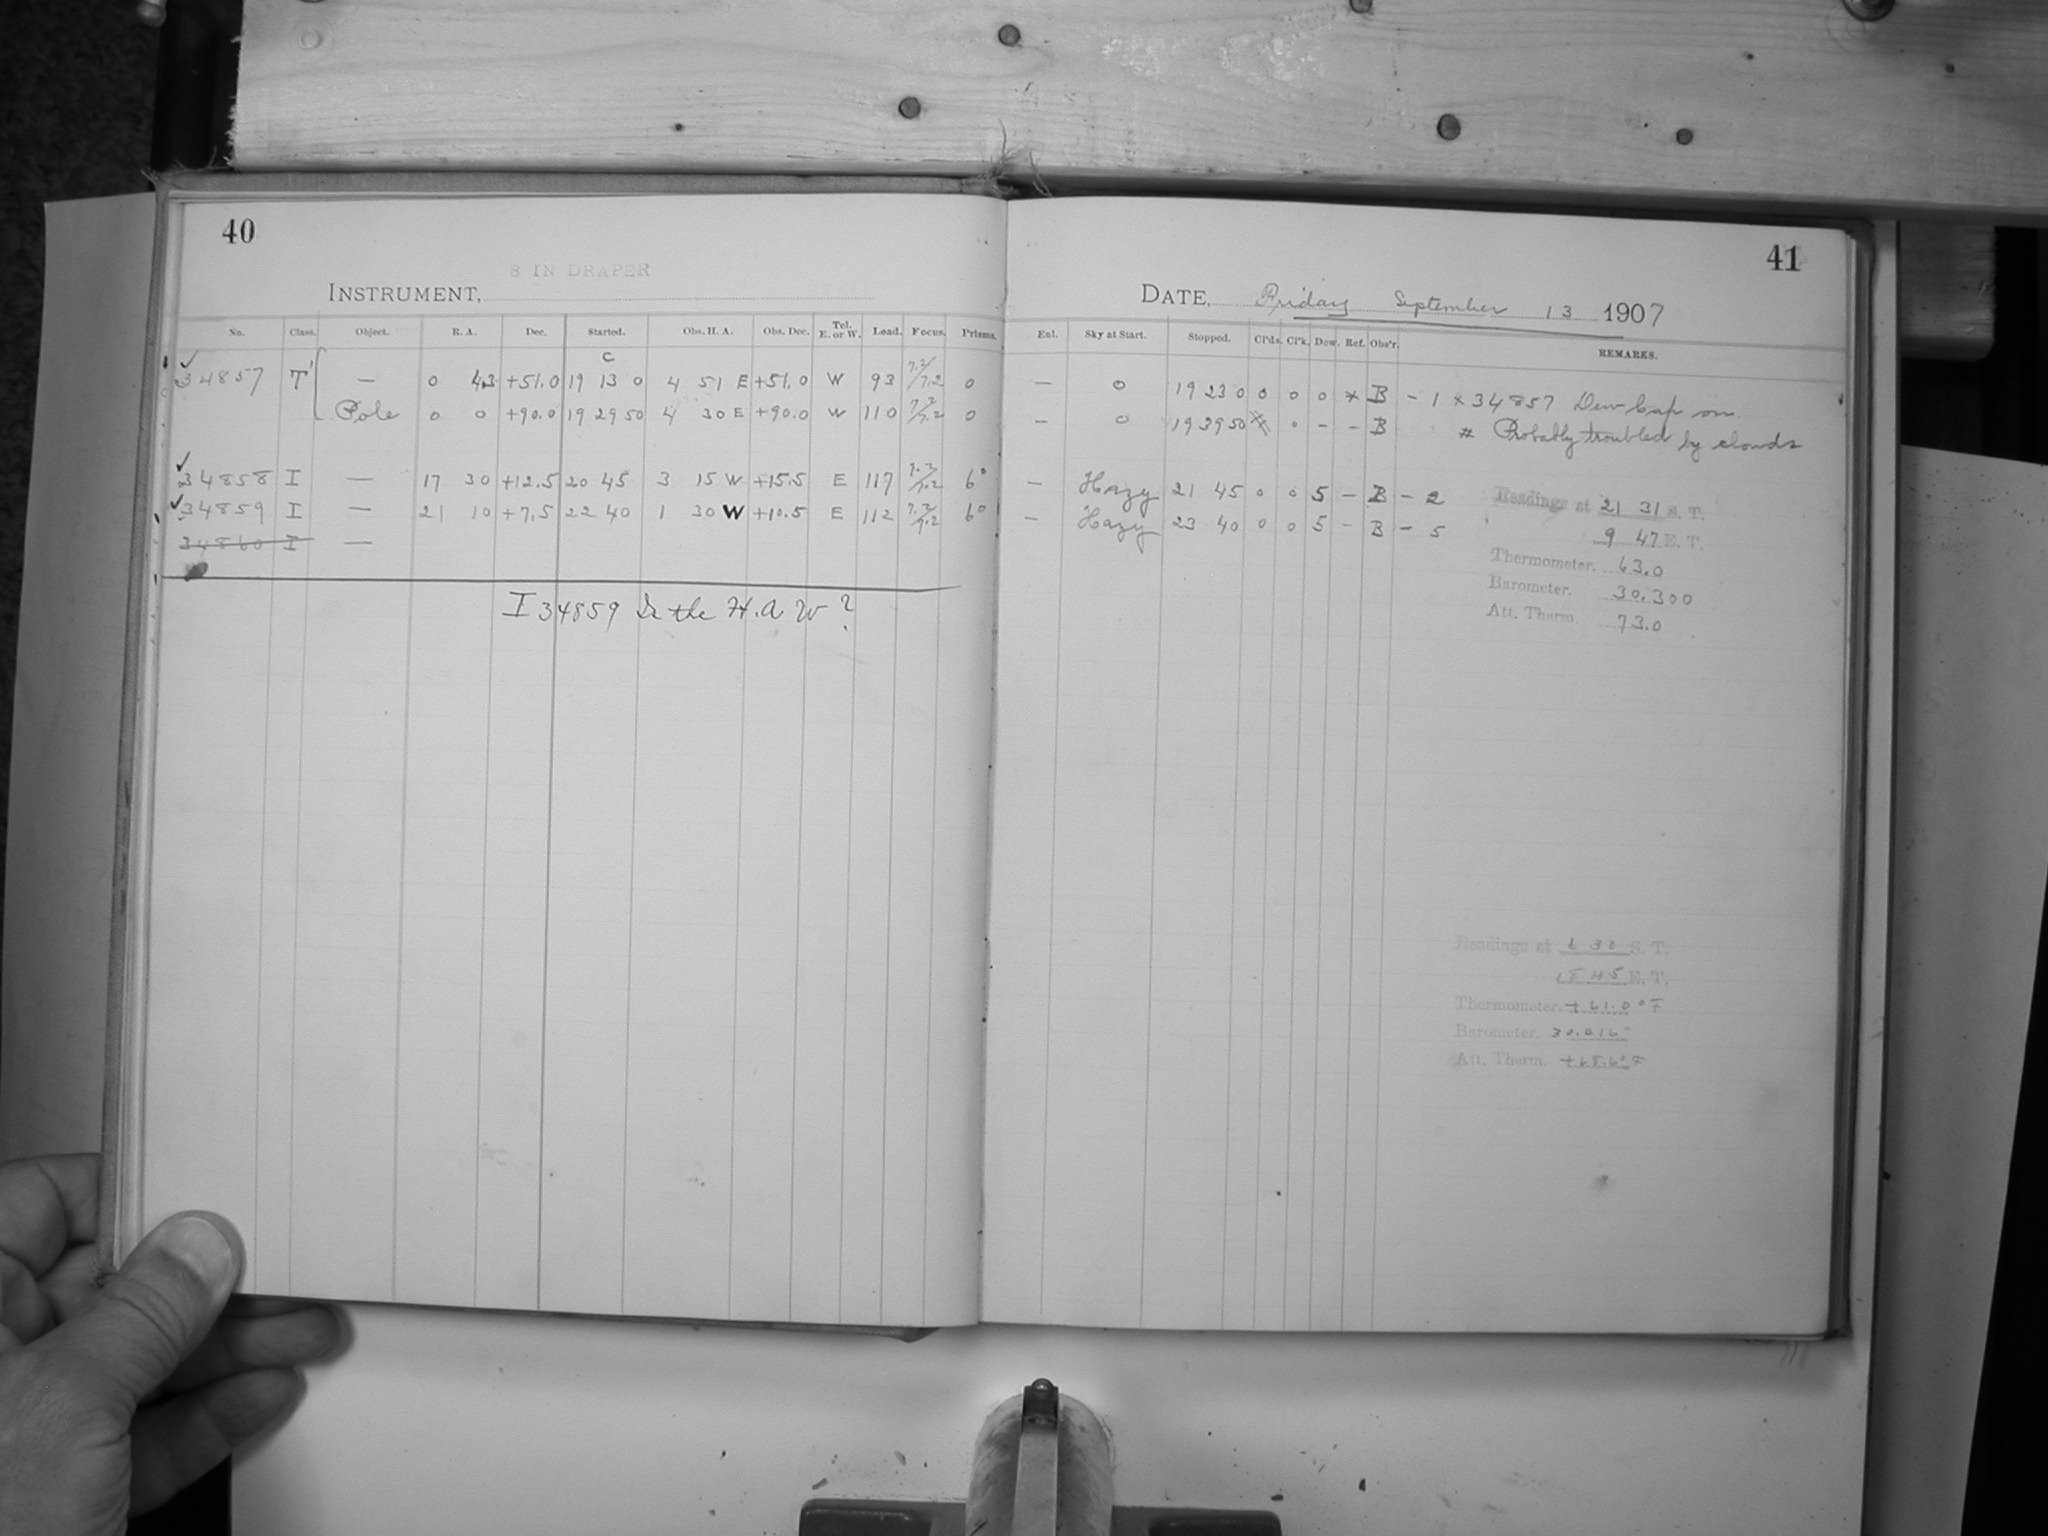 40
8 IN DRAPER
INSTRUMENT,
No. Class. Object. R. A. Dec. Started. Obs. H. A. Obs. Dec. Tel. E. or W. Load. Focus. Prisms.
C
34857 T' — 0 43 +51.0 19 13 0 4 51 E +51.0 W 93 7.2/7.2 0
Pole 0 0 +90.0 19 29 50 4 30 E +90.0 W 110 7.2/7.2 0
34858 I — 17 30 +12.5 20 45 3 15 W +15.5 E 117 7.2/7.2 6°
34859 I — 21 10 +7.5 22 40 1 30 W +10.5 E 112 7.2/7.2 6°
34860 I —
I 34859 Is the H.A W ?
41
DATE, Friday September 13 1907
Enl. Sky at Start. Stopped. Cl'ds. Cl'k. Dew. Ref. Obs'r. REMARKS.
— 0 19 23 0 0 0 0 * B - 1 * 34857 Dew Cap on
— 0 19 39 50 0 - - B # Probably troubled by clouds
— Hazy 21 45 0 0 5 - B - 2
— Hazy 23 40 0 0 5 - B - 5
Readings at 21 31 S. T.
9 47 E. T.
Thermometer. 63.0
Barometer. 30.300
Att. Therm. 73.0
Readings at 6 30 S. T.
45 E. T.
Thermometer. +61.0°F
Barometer.
Att. Therm.